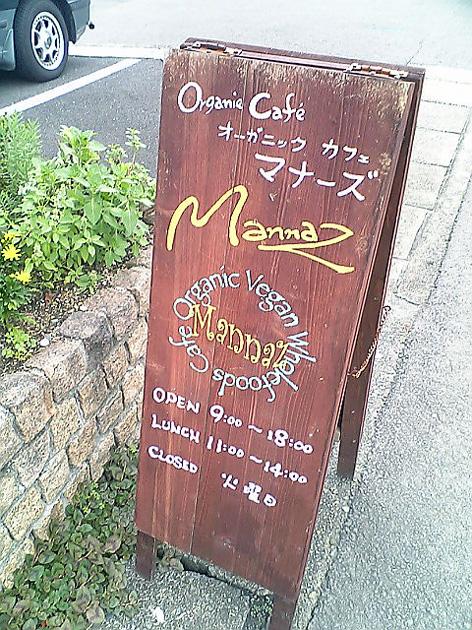 Organic Café
オーガニック カフェ
マナーズ
Mannaz
Cafe Organic Vegan Wholefoods
Mannaz
OPEN 9:00～18:00
LUNCH 11:00～14:00
CLOSED 火曜日